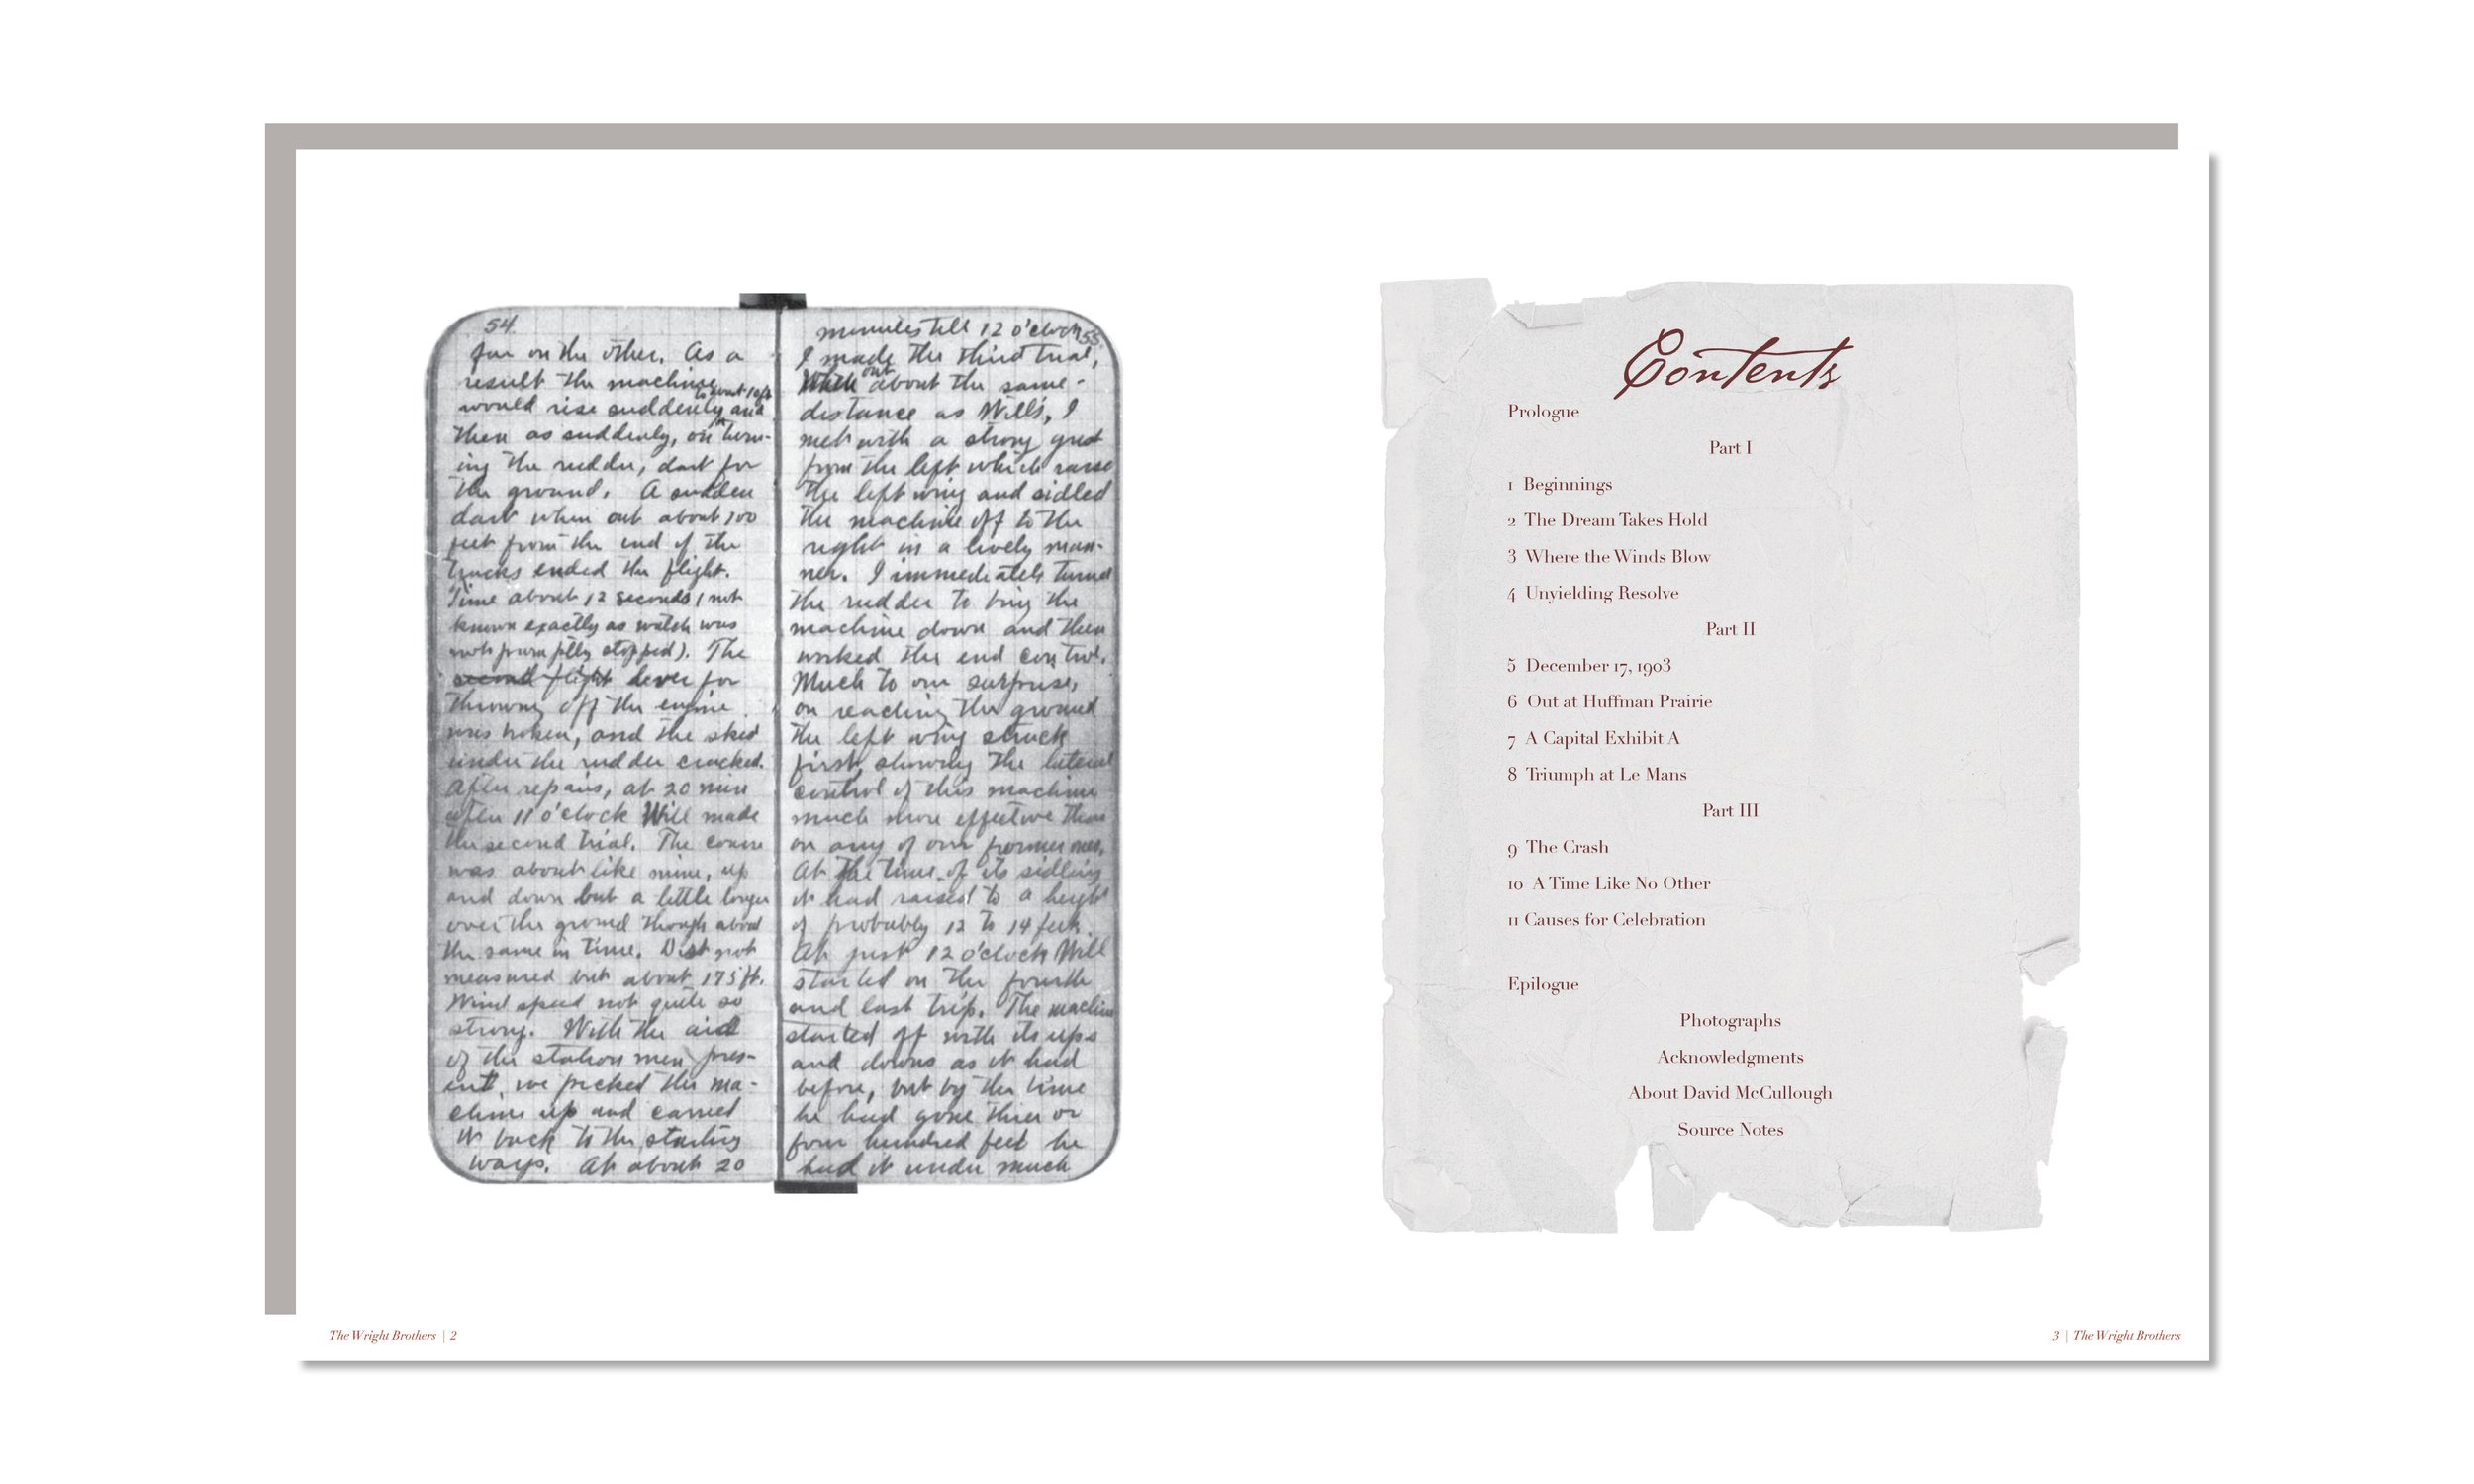 54
far on the other. As a
result the machine
would rise suddenly to about 10 ft and
then as suddenly, on turn-
ing the rudder, dart for
the ground. A sudden
dart when out about 100
feet from the end of the
tracks ended the flight.
Time about 12 seconds (not
known exactly as watch was
not promptly stopped). The
second flight lever for
throwing off the engine
was broken, and the skid
under the rudder cracked.
After repairs, at 20 min
after 11 o'clock Will made
the second trial. The course
was about like mine, up
and down but a little longer
over the ground though about
the same in time. Dist not
measured but about 175 ft.
Wind speed not quite so
strong. With the aid
of the station men pres-
ent, we picked the ma-
chine up and carried
it back to the starting
ways. At about 20
minutes till 12 o'clock 55
I made the third trial,
out about the same
distance as Will's, I
met with a strong gust
from the left which raise
the left wing and sidled
the machine off to the
right in a lively man-
ner. I immediately turned
the rudder to bring the
machine down and then
worked the end control.
Much to our surprise,
on reaching the ground
the left wing struck
first, showing the lateral
control of this machine
much more effective than
on any of our former ones.
At the time of its sidling
it had raised to a height
of probably 12 to 14 feet.
At just 12 o'clock Will
started on the fourth
and last trip. The machine
started off with its ups
and downs as it had
before, but by the time
he had gone three or
four hundred feet he
had it under much
Contents
Prologue
Part I
1 Beginnings
2 The Dream Takes Hold
3 Where the Winds Blow
4 Unyielding Resolve
Part II
5 December 17, 1903
6 Out at Huffman Prairie
7 A Capital Exhibit A
8 Triumph at Le Mans
Part III
9 The Crash
10 A Time Like No Other
11 Causes for Celebration
Epilogue
Photographs
Acknowledgments
About David McCullough
Source Notes
The Wright Brothers | 2
3 | The Wright Brothers